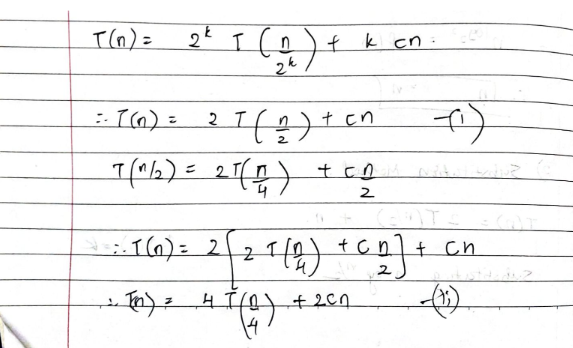 T(n) = 2^k T(n/2^k) + k cn.
∴ T(n) = 2 T(n/2) + cn —(i)
T(n/2) = 2T(n/4) + c n/2
∴ T(n) = 2[2 T(n/4) + c n/2] + cn
∴ T(n) = 4 T(n/4) + 2cn —(ii)